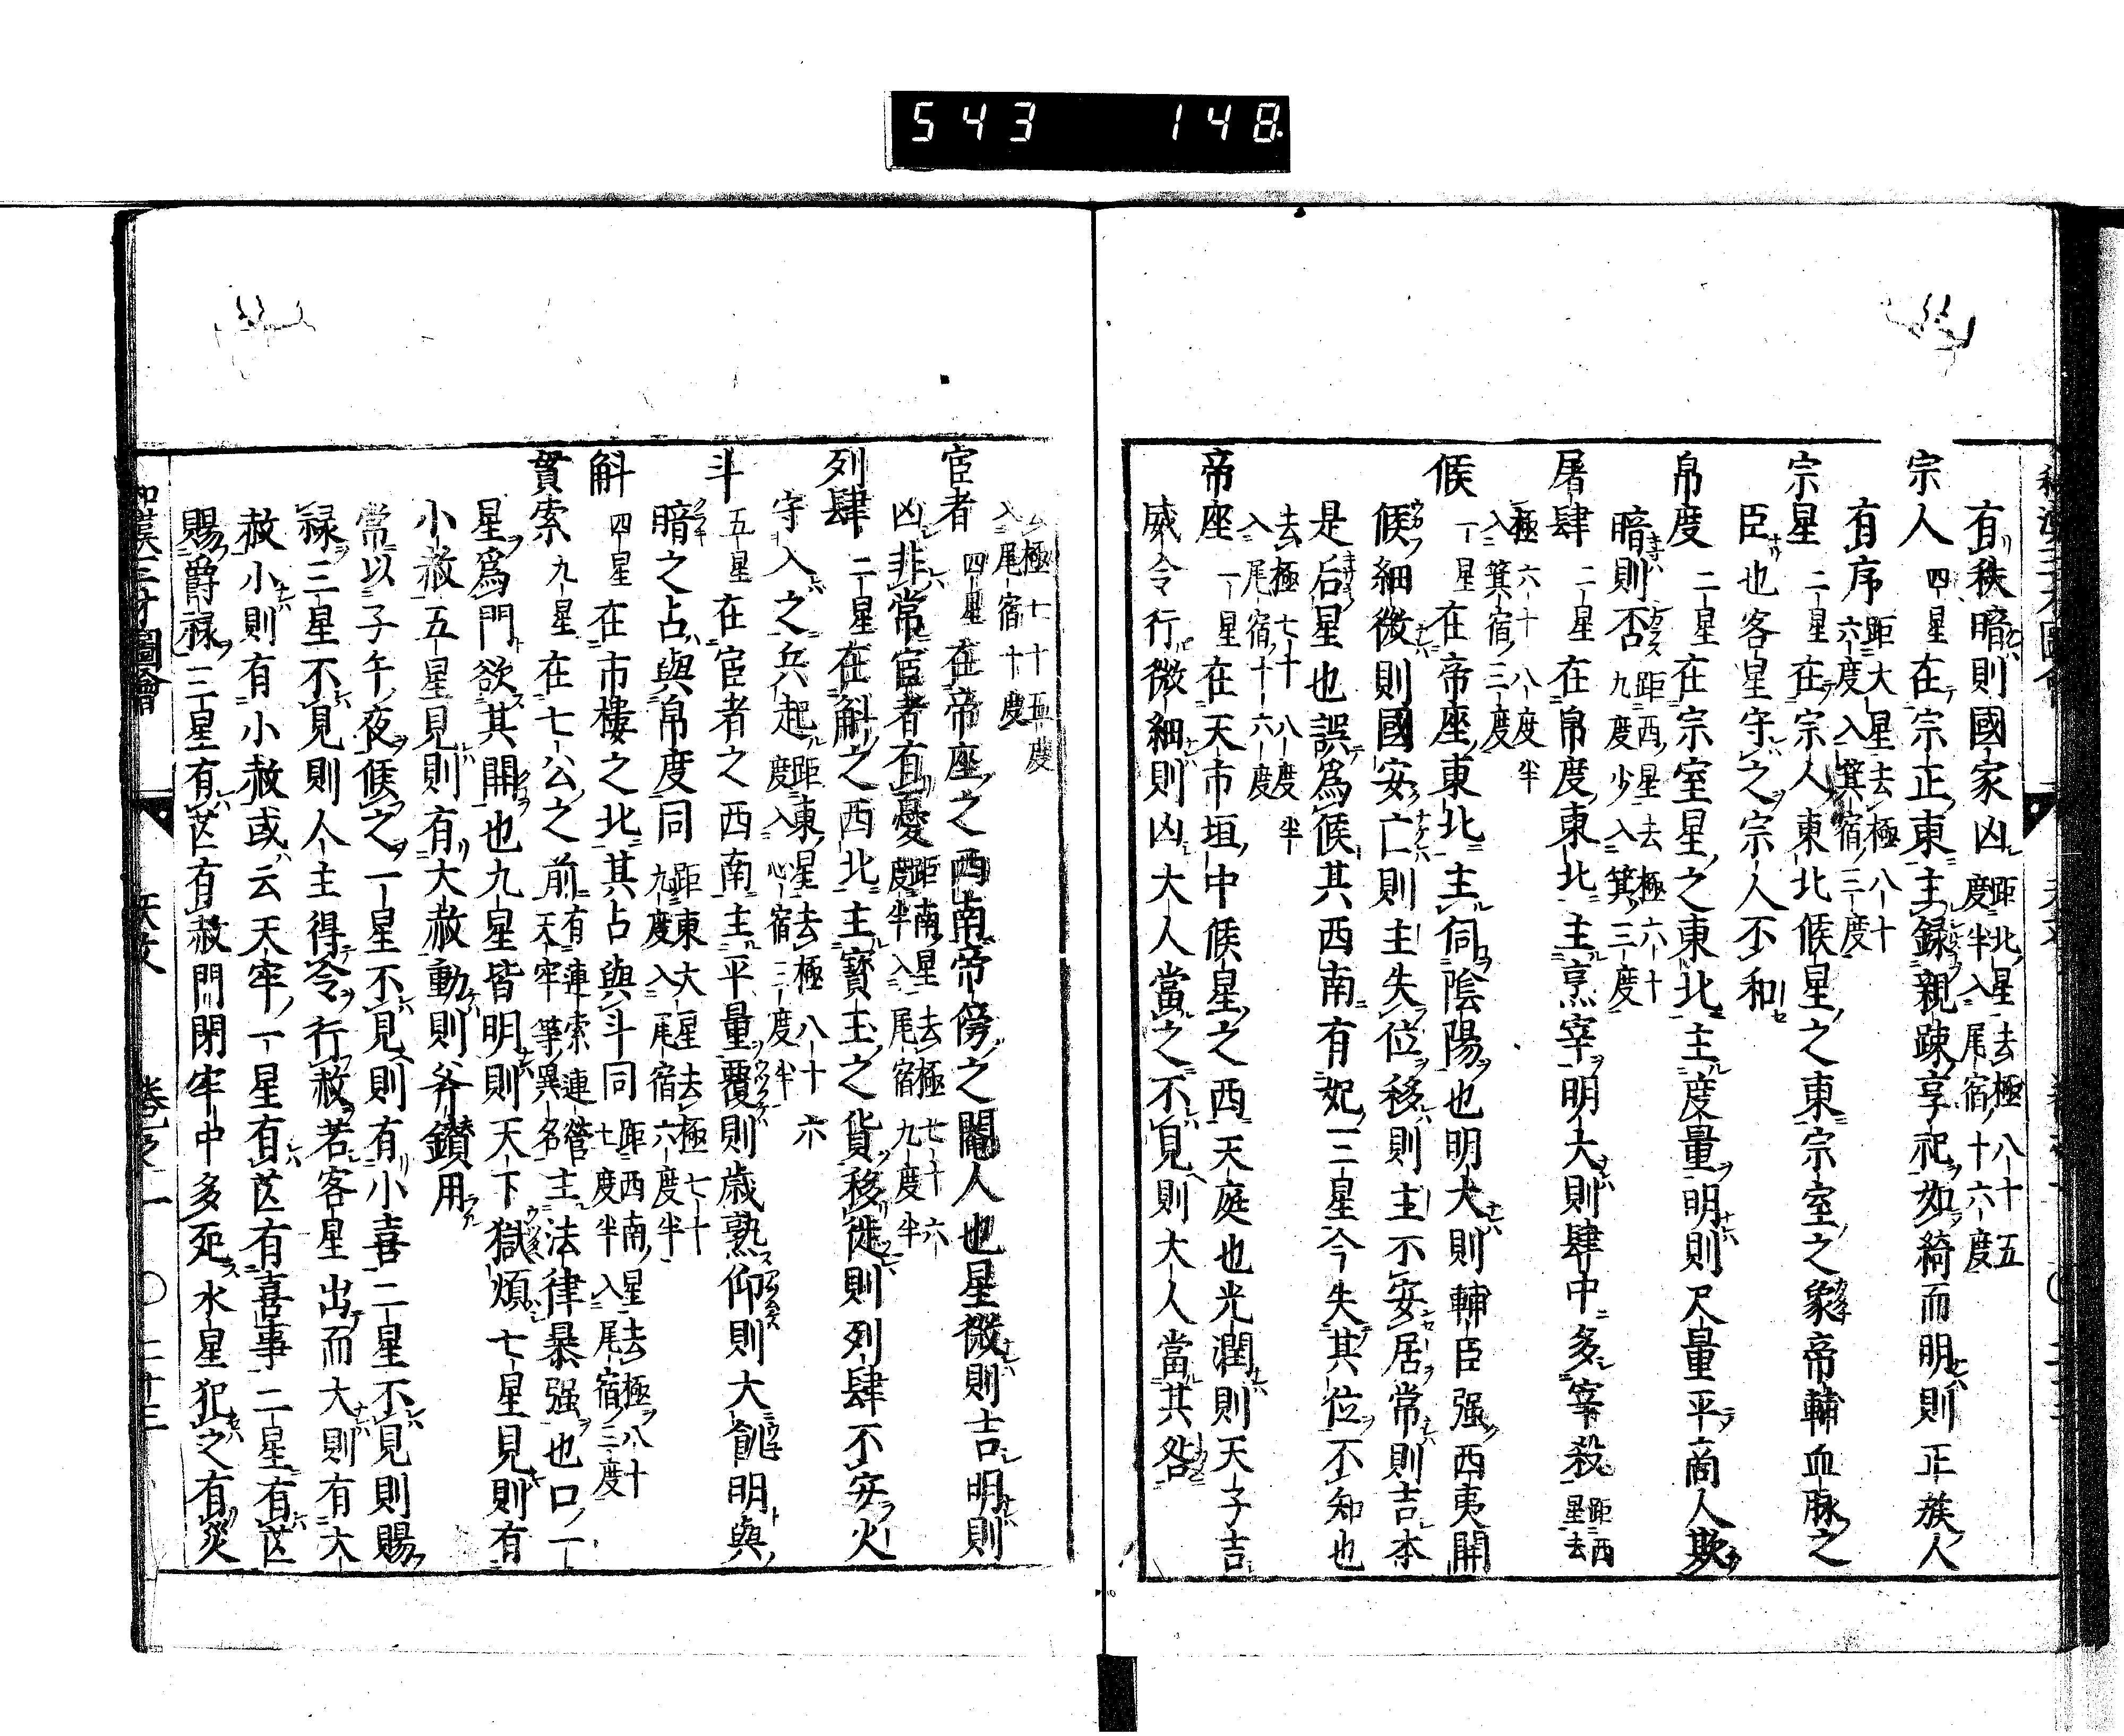 543 148
有秩暗則國家凶 距北星去極八十五度半入尾宿十六度
宗人 四星在宗正東主録親疎享祀如綺而明則正族人
有序 距大星去極八十六度入箕宿三度
宗星 二星在宗人東北候星之東宗室之象帝輔血脉之
臣也客星守之宗人不和
帛度 二星在宗室星之東北主度量明則尺量平商人欺
暗則否 距西星去極六十九度少入箕三度
屠肆 二星在帛度東北主烹宰明大則肆中多宰殺 距西星去
極六十八度半入箕宿三度
候 一星在帝座東北主伺陰陽也明大則輔臣强西夷開
候細微則國安亡則主失位移則主不安居常則吉本
是后星也誤爲候其西南有妃三星今失其位不知也
去極七十八度半入尾宿十六度
帝座 一星在天市垣中候星之西天庭也光潤則天子吉
威令行微細則凶大人當之不見則大人當其咎
去極七十五度入尾宿十度
宦者 四星在帝座之西南帝傍之閹人也星微則吉明則
凶非常宦者有憂 距南星去極七十六度半入尾宿九度半
列肆 二星在斛之西北主寳玉之貨移徙則列肆不安火
守入之兵起 距東星去極八十六度入心宿三度半
斗 五星在宦者之西南主平量覆則歳熟仰則大飢明與
暗之占與帛度同 距東大星去極七十九度入尾宿六度半
斛 四星在市樓之北其占與斗同 距西南星去極八十七度半入尾宿三度
貫索 九星在七公之前 有連索連營天牢等異名 主法律暴强也口一
星爲門欲其開也九星皆明則天下獄煩七星見則有
小赦五星見則有大赦動則斧鑕用
常以子午夜候之一星不見則有小喜二星不見則賜
禄三星不見則人主得令行赦若客星出而大則有大
赦小則有小赦或云天牢一星有芒有喜事二星有芒
賜爵禄三星有芒有赦門閉牢中多死水星犯之有災
和漢三才圖會 天文 卷之一 〇二十三